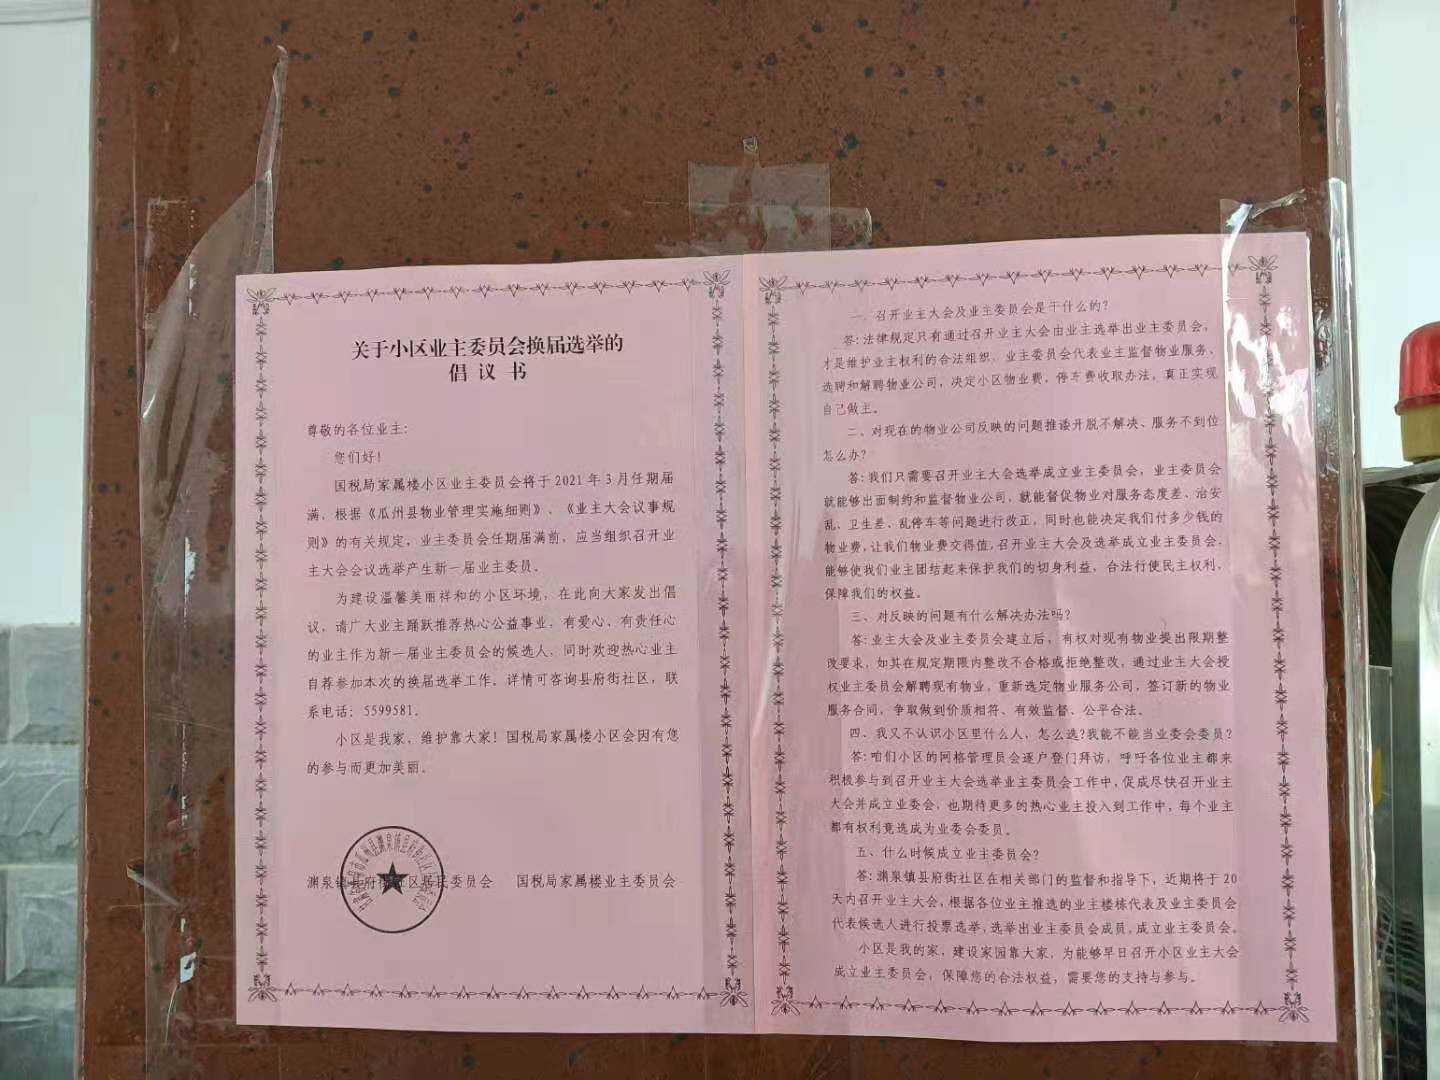 关于小区业主委员会换届选举的
倡议书
尊敬的各位业主:
您们好!
国税局家属楼小区业主委员会将于2021年3月任期届
满,根据《瓜州县物业管理实施细则》、《业主大会议事规
则》的有关规定,业主委员会任期届满前,应当组织召开业
主大会会议选举产生新一届业主委员。
为建设温馨美丽祥和的小区环境,在此向大家发出倡
议,请广大业主踊跃推荐热心公益事业,有爱心、有责任心
的业主作为新一届业主委员会的候选人,同时欢迎热心业主
自荐参加本次的换届选举工作。详情可咨询县府街社区,联
系电话:5599581。
小区是我家,维护靠大家!国税局家属楼小区会因有您
的参与而更加美丽。
渊泉镇县府街社区居民委员会 国税局家属楼业主委员会
一、召开业主大会及业主委员会是干什么的?
答:法律规定只有通过召开业主大会由业主选举出业主委员会,
才是维护业主权利的合法组织。业主委员会代表业主监督物业服务、
选聘和解聘物业公司,决定小区物业费,停车费收取办法,真正实现
自己做主。
二、对现在的物业公司反映的问题推诿开脱不解决、服务不到位
怎么办?
答:我们只需要召开业主大会选举成立业主委员会,业主委员会
就能够出面制约和监督物业公司,就能督促物业对服务态度差、治安
乱、卫生差、乱停车等问题进行改正,同时也能决定我们付多少钱的
物业费,让我们物业费交得值,召开业主大会及选举成立业主委员会,
能够使我们业主团结起来保护我们的切身利益,合法行使民主权利,
保障我们的权益。
三、对反映的问题有什么解决办法吗?
答:业主大会及业主委员会建立后,有权对现有物业提出限期整
改要求,如其在规定期限内整改不合格或拒绝整改,通过业主大会授
权业主委员会解聘现有物业,重新选定物业服务公司,签订新的物业
服务合同,争取做到价质相符、有效监督、公平合法。
四、我又不认识小区里什么人,怎么选?我能不能当业委会委员?
答:咱们小区的网格管理员会逐户登门拜访,呼吁各位业主都来
积极参与到召开业主大会选举业主委员会工作中,促成尽快召开业主
大会并成立业委会,也期待更多的热心业主投入到工作中,每个业主
都有权利竟选成为业委会委员。
五、什么时候成立业主委员会?
答:渊泉镇县府街社区在相关部门的监督和指导下,近期将于20
天内召开业主大会,根据各位业主推选的业主楼栋代表及业主委员会
代表候选人进行投票选举,选举出业主委员会成员,成立业主委员会。
小区是我的家,建设家园靠大家,为能够早日召开小区业主大会
成立业主委员会,保障您的合法权益,需要您的支持与参与。